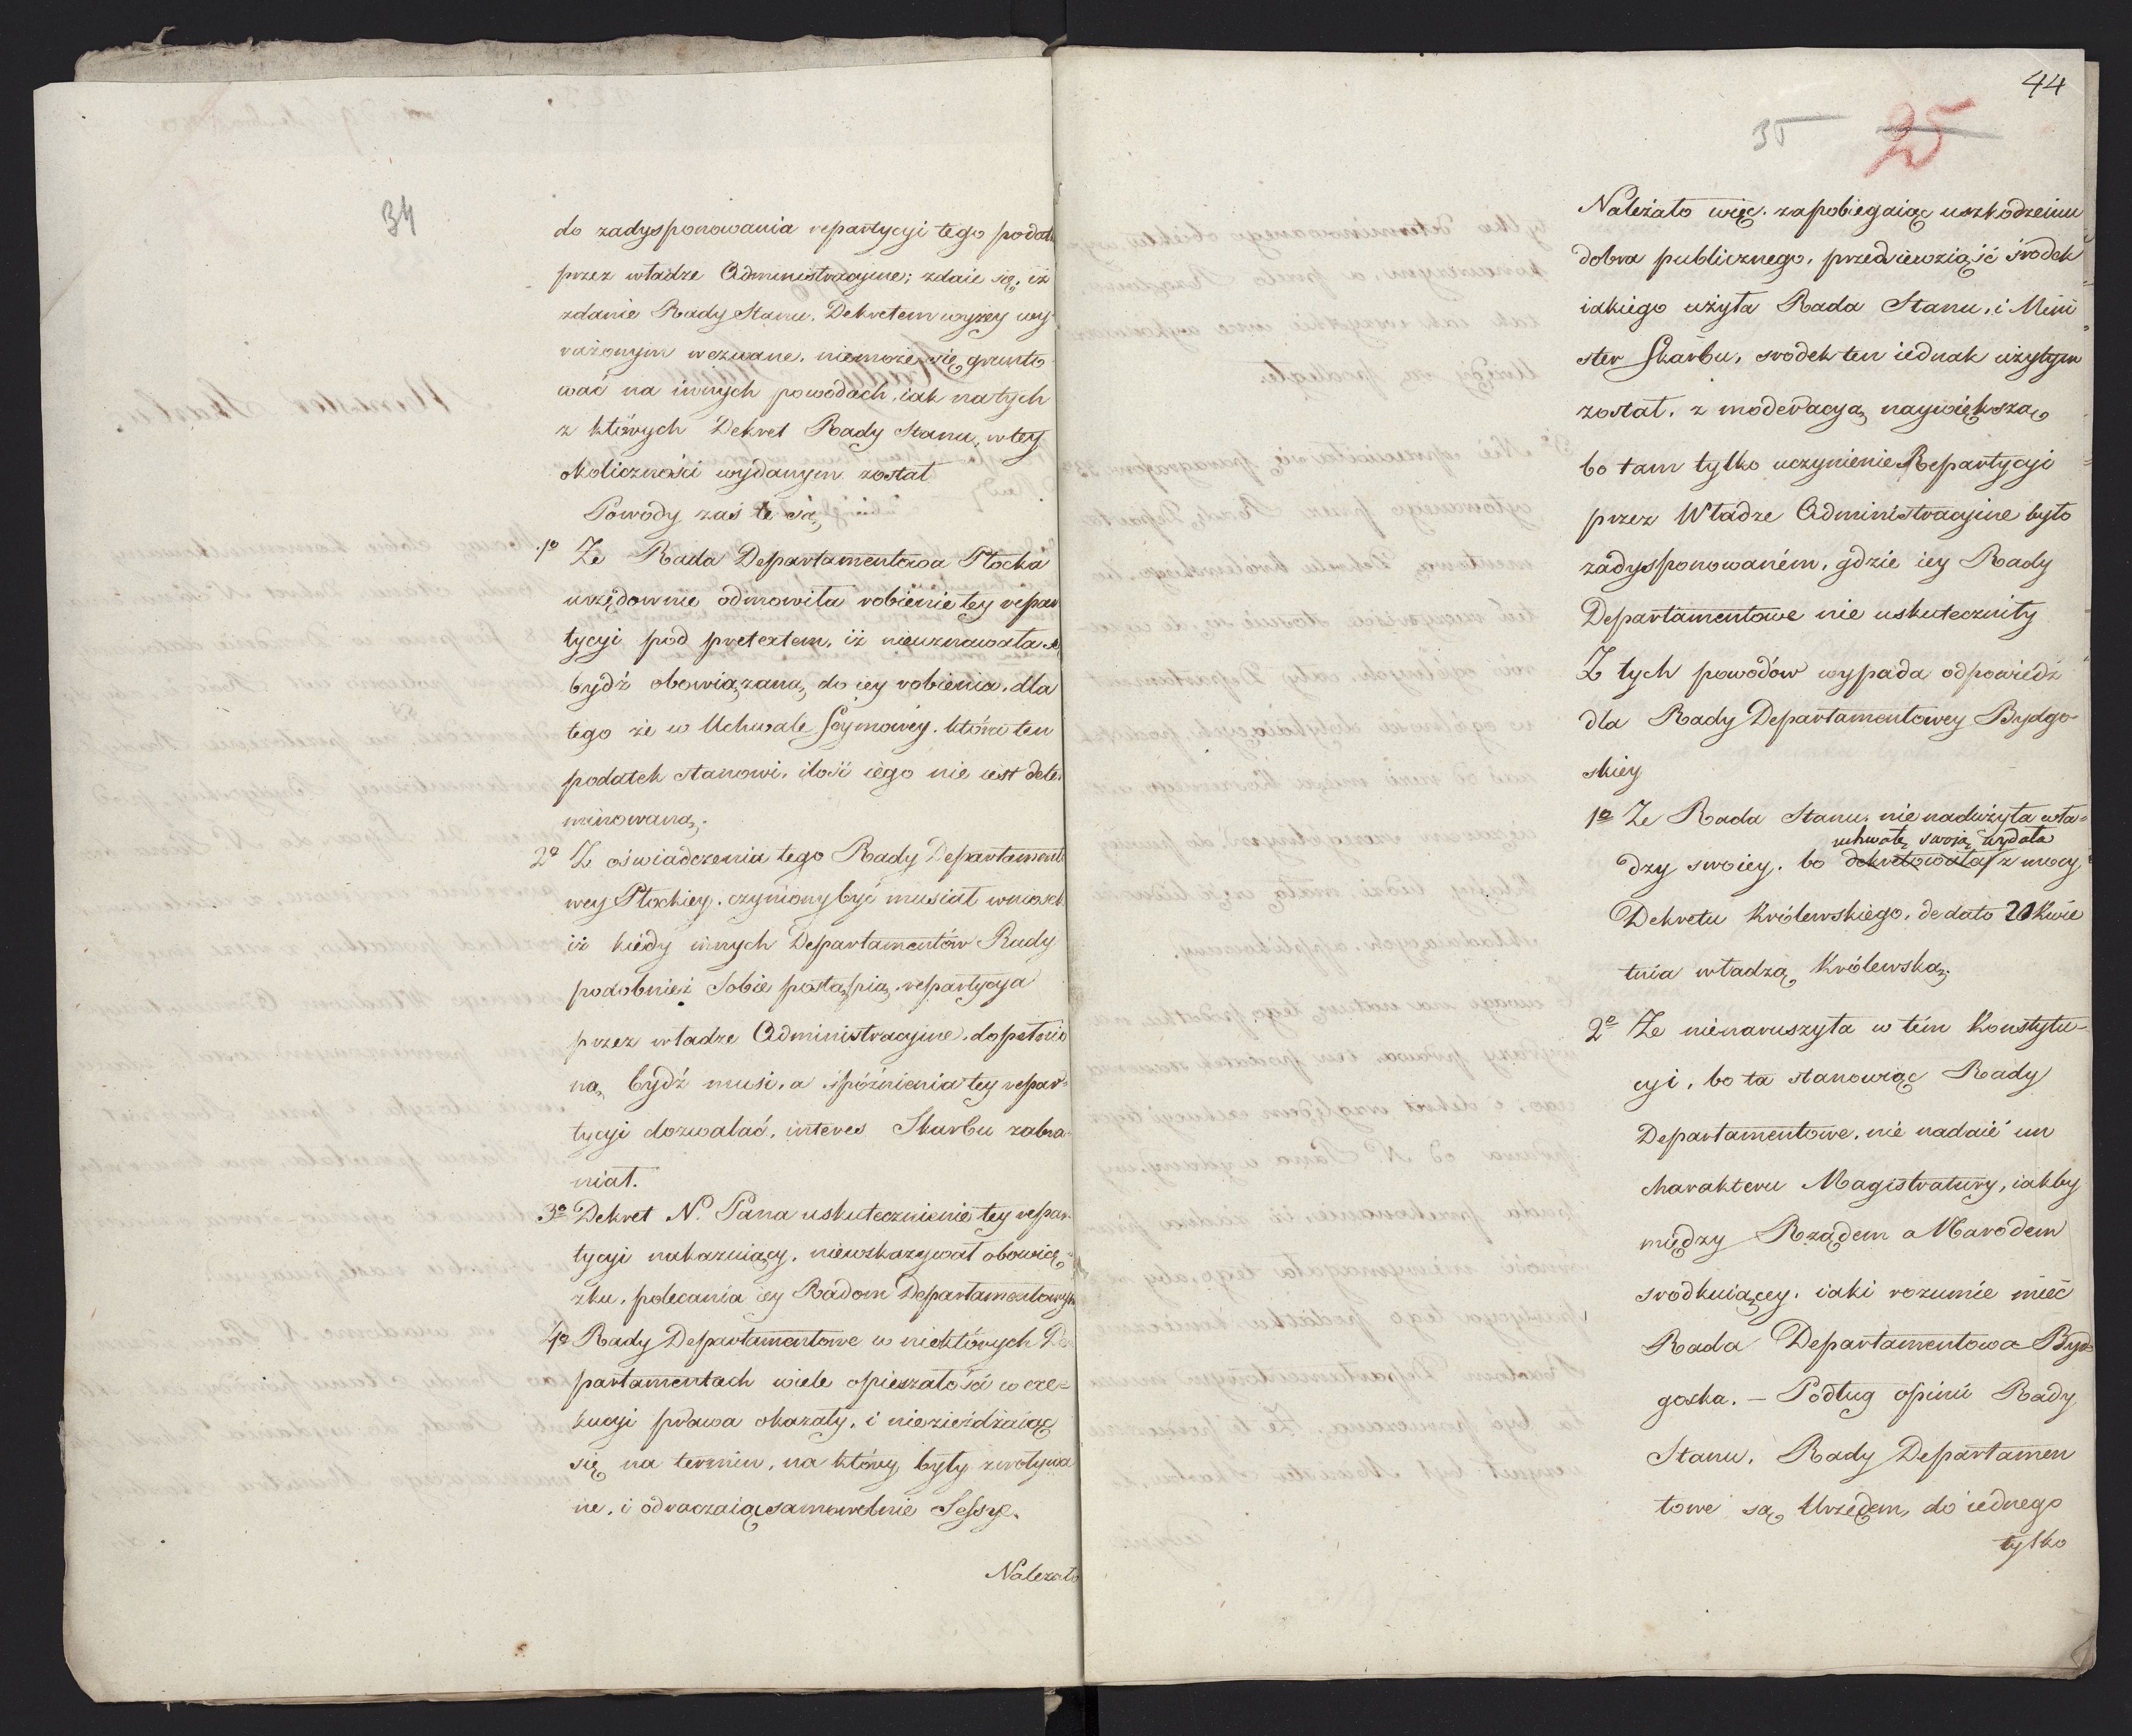 34
do zadysponowania repartycyi tego podat
przez władze Administracyine; zdaie się, iż
zdanie Rady Stanu, Dekretem wyżey wy
rażonym wezwane, niemoże się grunto
wać na innych powodach, iak na tych
z których Dekret Rady Stanu, w tey
okoliczności wydanym został
Powody zaś te są,
1o Ze Rada Departamentowa Płocka
urzędownie odmowiła robienie tey repar
tycyi pod pretextem, iż nieuznawała się
bydź obowiązaną, do iey robienia, dla
tego że w Uchwale Seymowey, która ten
podatek stanowi, ilość iego nie iest deter
minowaną.
2o Z oświadczenia tego Rady Departamento
wey Płockiey, czyniony być musiał wniosek
iż kiedy innych Departamentów Rady
podobnież sobie postąpią, repartycya
przez władze Administracyine, dopełnio
ną bydź musi, a spóźnienia tey repar-
tycyi dozwalać, interes Skarbu zabra-
niał.
3o Dekret N. Pana uskutecznienie tey repar-
tycyi nakazuiący, niewskazywał obowią-
zku, polecania iey Radom Departamentowym
4o Rady Departamentowe w niektórych De
partamentach wiele opieszałości w exe-
kucyi prawa okazały, i niezieżdżaiąc
się na termin, na który były zwoływa
ne, i odraczaiąc samowolnie Sessye.
Należało
44
35 25
Należało więc, zapobiegaiąc uszkodzeniu
dobra publicznego, przedsiewziąść środek
iakiego użyła Rada Stanu, i Mini
ster Skarbu, srodek ten iednak użytym
został, z moderacyą naywiększą,
bo tam tylko uczynienie Repartycyi
przez Władze Administracyine było
zadysponowaném, gdzie iey Rady
Departamentowe nie uskuteczniły
Z tych powodów wypada odpowiedź
dla Rady Departamentowey Bydgo-
skiey
1o Ze Rada Stanu, nie nadużyła wła-
uchwałę swoią wydała
dzy swoiey, bo dekretowała z mocy
Dekretu Królewskiego, de dato 20 Kwie
tnia władzą Królewską,
2o Ze nienaruszyła w tém Konstytu-
cyi, bo ta stanowiąc Rady
Departamentowe, nie nadaie im
charakteru Magistratury, iakby
między Rządem a Narodem
srodkuiącey, iaki rozumie mieć
Rada Departamentowa Byd-
goska. – Podług opinii Rady
Stanu, Rady Departamen
towe są Urzędem, do iednego
tylko